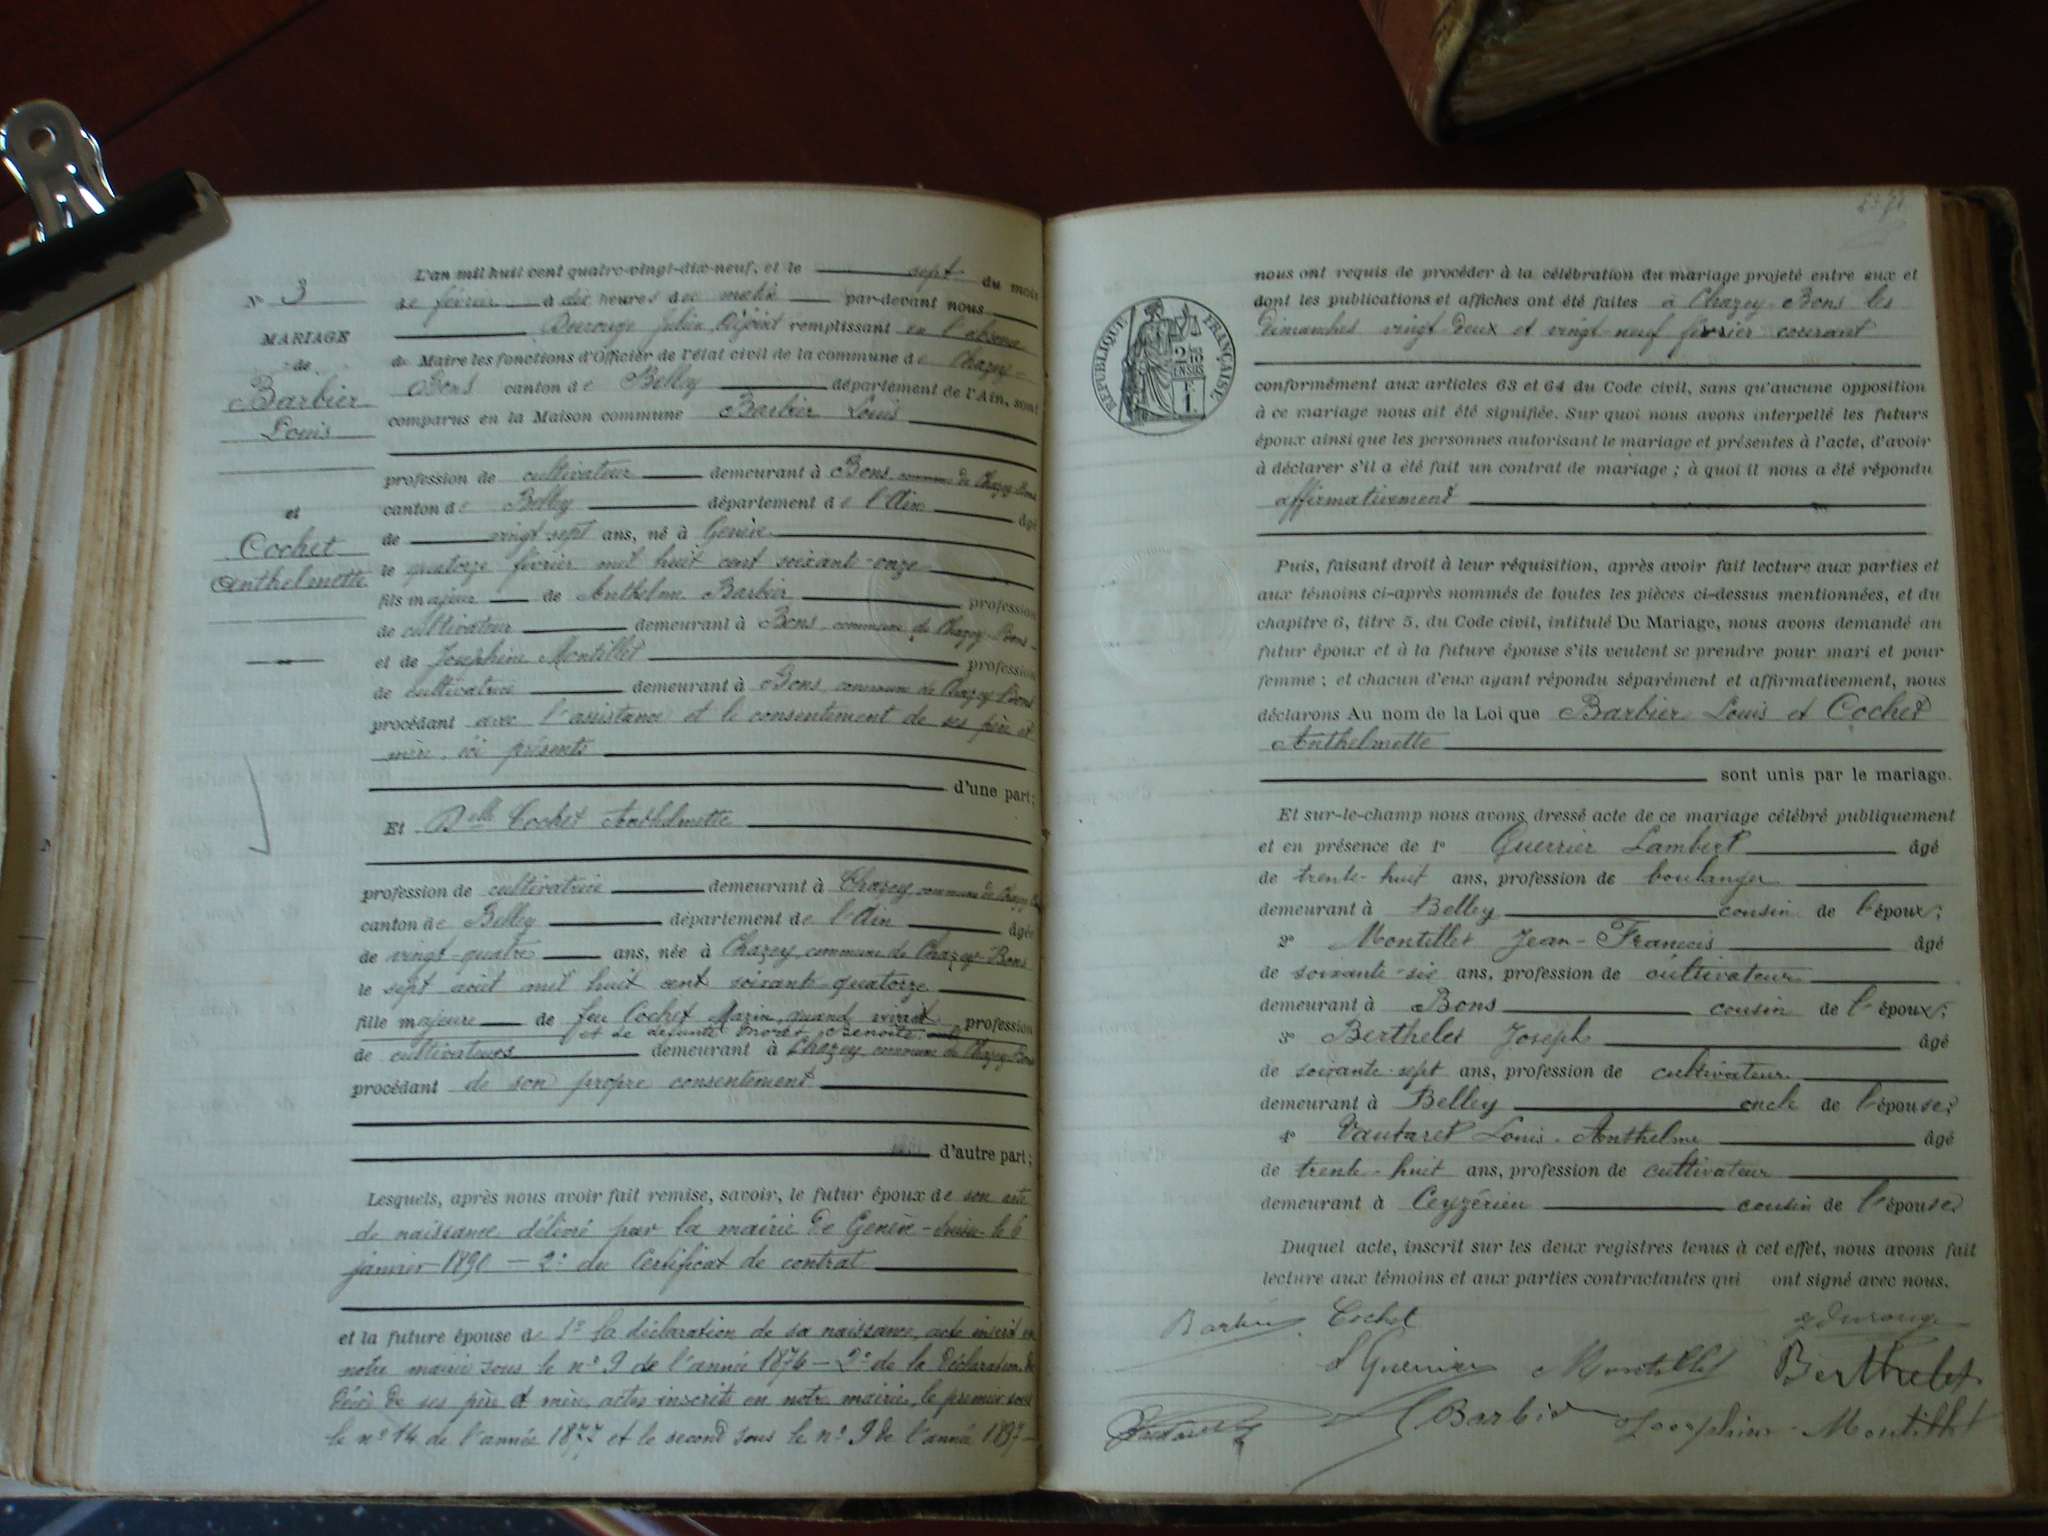 N° 3
MARIAGE
de
Barbier
Louis
et
Cochet
Anthelmette
L'an mil huit cent quatre-vingt-dix-neuf, et le sept du mois
de février à dix heures du matin par-devant nous
Durouge Julien Adjoint remplissant en l'absence
de Maire les fonctions d'Officier de l'état civil de la commune de Chazey-
Bons canton de Belley département de l'Ain, sont
comparus en la Maison commune Barbier Louis
profession de cultivateur demeurant à Bons, commune de Chazey-Bons
canton de Belley département de l'Ain âgé
de vingt-sept ans, né à Genève
le quatorze février mil huit cent soixante-onze
fils majeur de Anthelme Barbier profession
de cultivateur demeurant à Bons, commune de Chazey-Bons
et de Joséphine Montillet profession
de cultivatrice demeurant à Bons, commune de Chazey-Bons
procédant avec l'assistance et le consentement de ses père et
mère, ici présents
d'une part;
Et Delle Cochet Anthelmette
profession de cultivatrice demeurant à Chazey commune de Chazey-Bons
canton de Belley département de l'Ain âgée
de vingt-quatre ans, née à Chazey, commune de Chazey-Bons
le sept août mil huit cent soixante-quatorze
fille majeure de feu Cochet Marin, quand vivait profession
et de défunte Benoîte
de cultivateurs demeurant à Chazey, commune de Chazey-Bons
procédant de son propre consentement
d'autre part;
Lesquels, après nous avoir fait remise, savoir, le futur époux de son acte
de naissance délivré par la mairie de Genève-Suisse le 6
janvier 1890 - 2° du Certificat de contrat
et la future épouse de 1° la déclaration de sa naissance, acte inscrit en
notre mairie sous le n° 9 de l'année 1876 - 2° de la Déclaration de
décès de ses père et mère, actes inscrits en notre mairie, le premier sous
le n° 14 de l'année 1877 et le second sous le n° 9 de l'année
RÉPUBLIQUE FRANÇAISE
nous ont requis de procéder à la célébration du mariage projeté entre eux et
dont les publications et affiches ont été faites à Chazey-Bons les
dimanches vingt deux et vingt-neuf février courant
conformément aux articles 63 et 64 du Code civil, sans qu'aucune opposition
à ce mariage nous ait été signifiée. Sur quoi nous avons interpellé les futurs
époux ainsi que les personnes autorisant le mariage et présentes à l'acte, d'avoir
à déclarer s'il a été fait un contrat de mariage; à quoi il nous a été répondu
affirmativement
Puis, faisant droit à leur réquisition, après avoir fait lecture aux parties et
aux témoins ci-après nommés de toutes les pièces ci-dessus mentionnées, et du
chapitre 6, titre 5, du Code civil, intitulé Du Mariage, nous avons demandé au
futur époux et à la future épouse s'ils veulent se prendre pour mari et pour
femme; et chacun d'eux ayant répondu séparément et affirmativement, nous
déclarons Au nom de la Loi que Barbier Louis et Cochet
Anthelmette
sont unis par le mariage.
Et sur-le-champ nous avons dressé acte de ce mariage célébré publiquement
et en présence de 1° Guerrier Lambert âgé
de trente-huit ans, profession de boulanger
demeurant à Belley cousin de l'époux;
2° Montillet Jean-Francois âgé
de soixante-six ans, profession de cultivateur
demeurant à Bons cousin de l'époux;
3° Berthelet Joseph âgé
de soixante-sept ans, profession de cultivateur
demeurant à Belley oncle de l'épouse;
4° Vautaret Louis-Anthelme âgé
de trente-huit ans, profession de cultivateur
demeurant à Ceyzérieu cousin de l'épouse
Duquel acte, inscrit sur les deux registres tenus à cet effet, nous avons fait
lecture aux témoins et aux parties contractantes qui ont signé avec nous.
Barbier Cochet Durouge
L Guerrier Montillet Berthelet
Barbier Joséphine Montillet